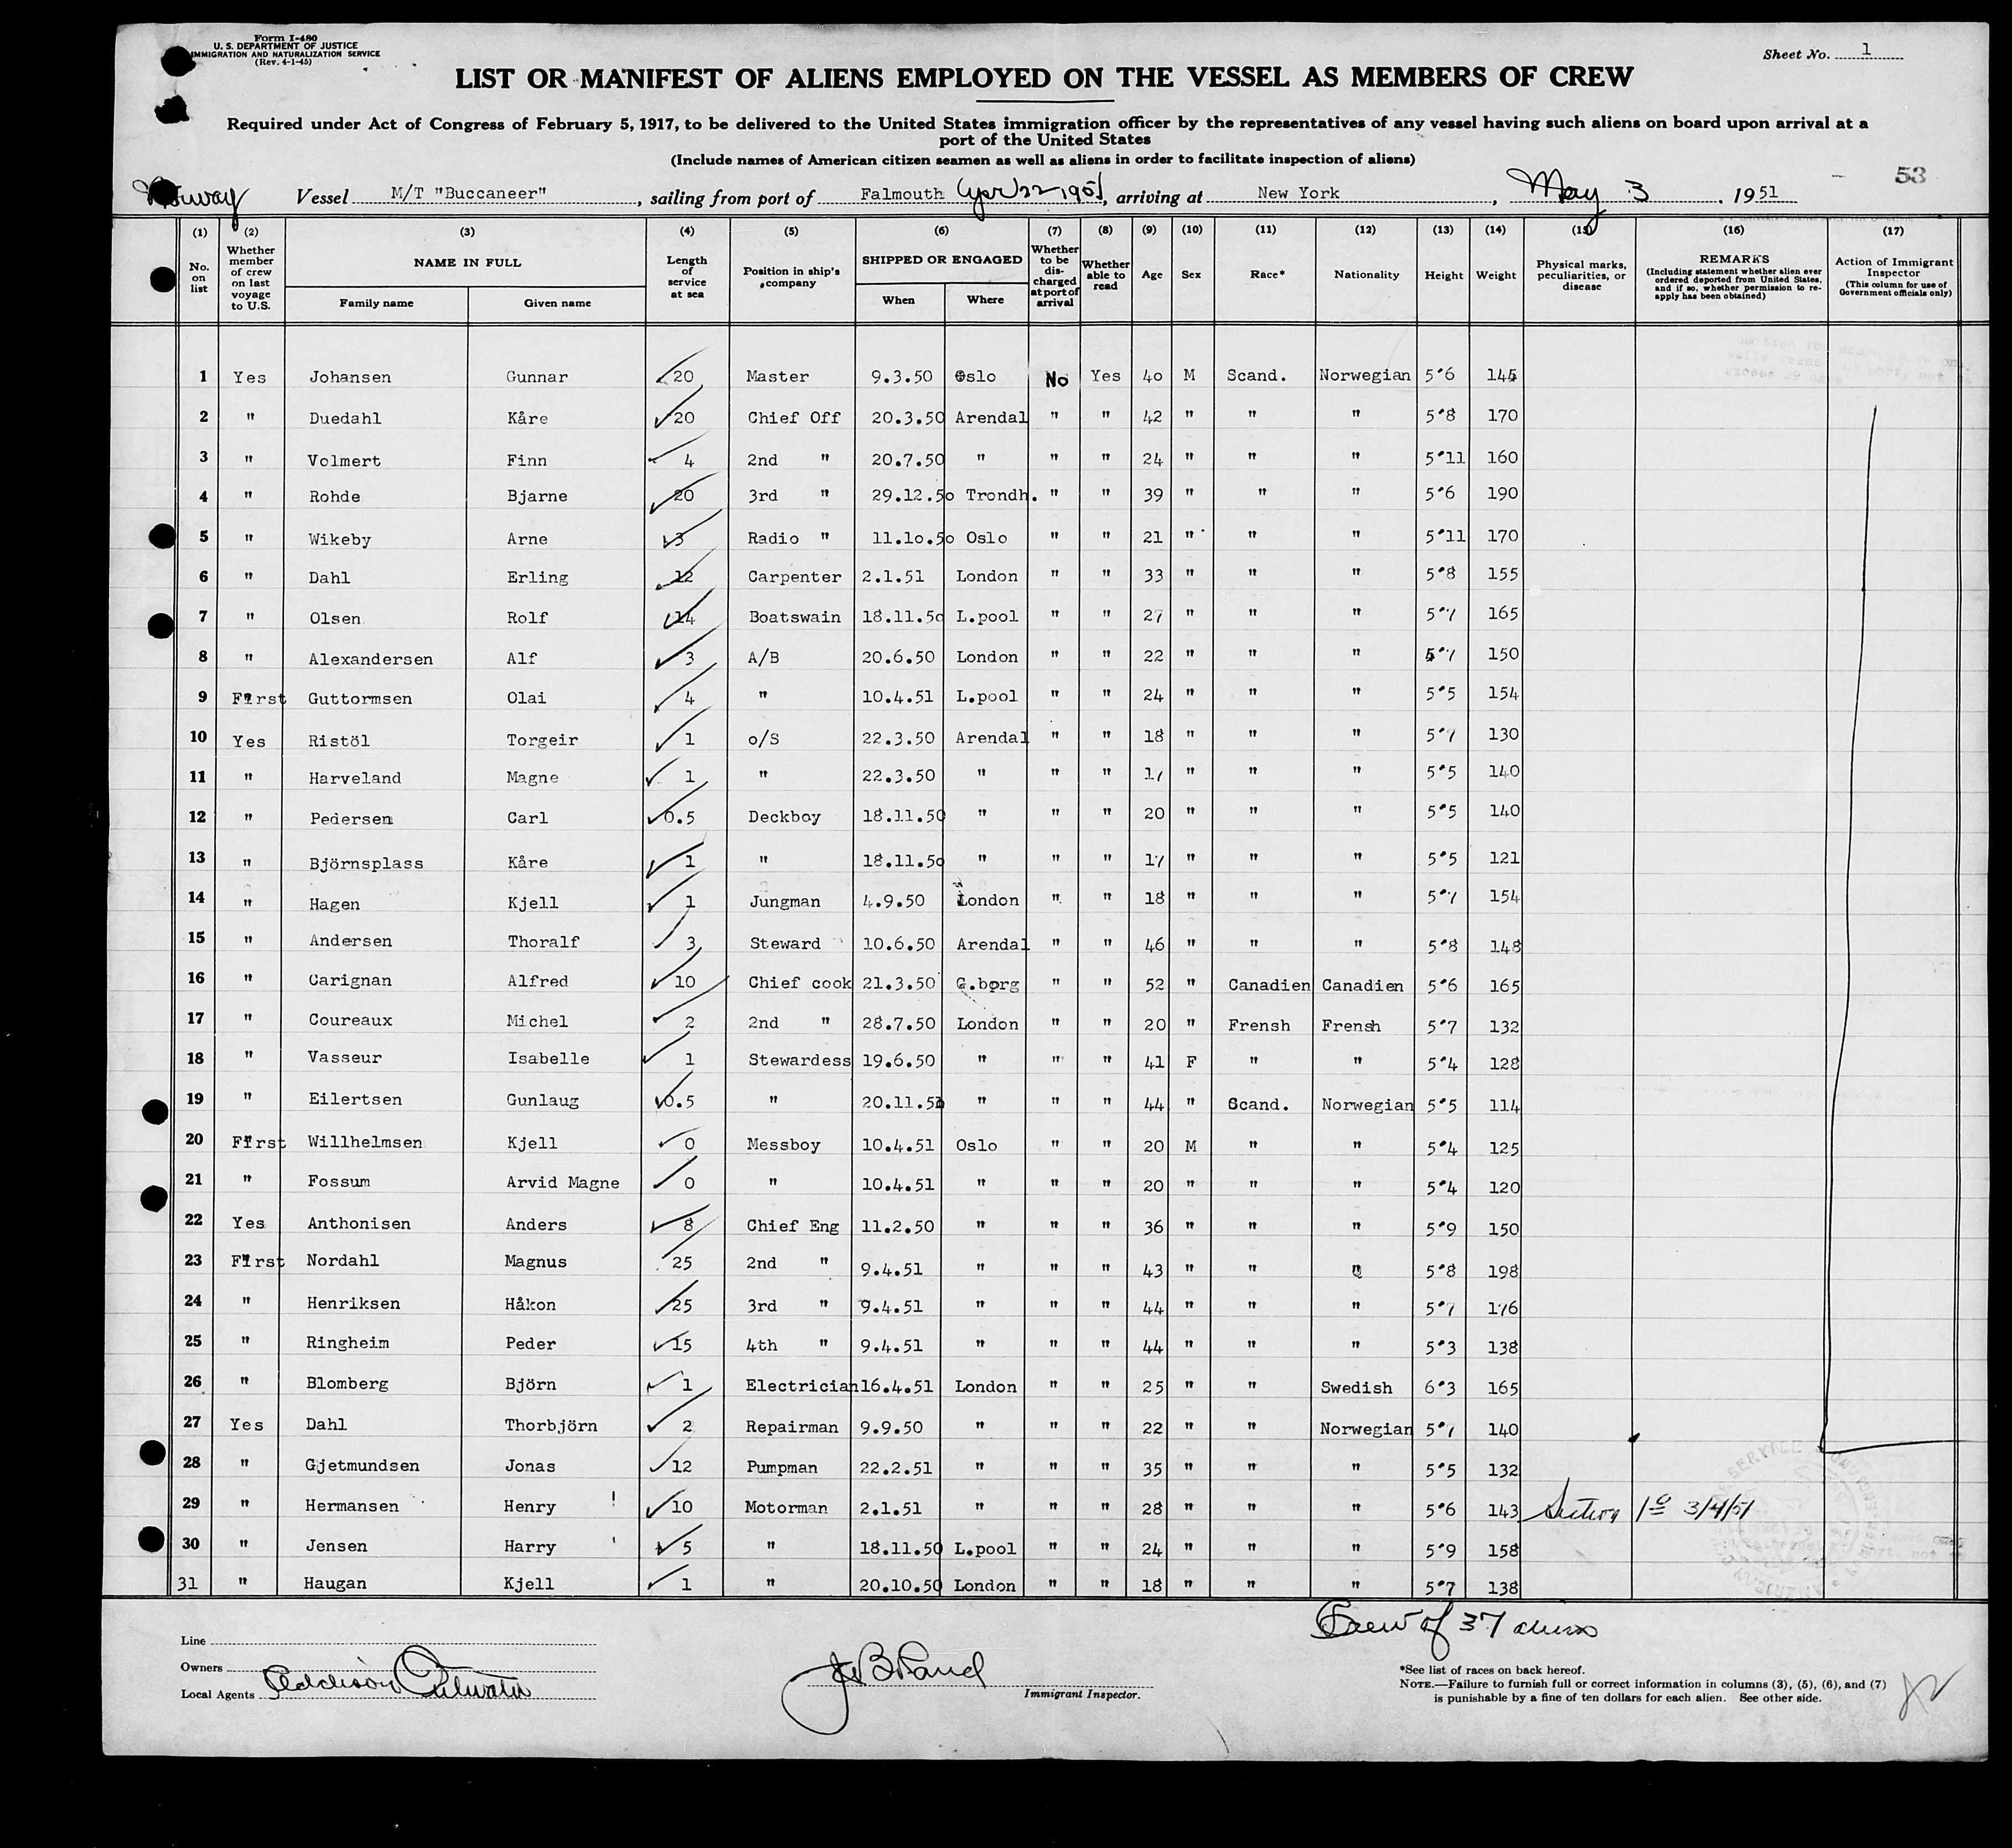 Form I-480
U. S. DEPARTMENT OF JUSTICE
IMMIGRATION AND NATURALIZATION SERVICE
(Rev. 4-1-45)
Sheet No. 1
LIST OR MANIFEST OF ALIENS EMPLOYED ON THE VESSEL AS MEMBERS OF CREW
Required under Act of Congress of February 5, 1917, to be delivered to the United States immigration officer by the representatives of any vessel having such aliens on board upon arrival at a
port of the United States
(Include names of American citizen seamen as well as aliens in order to facilitate inspection of aliens)
53
Norway Vessel M/T "Buccaneer", sailing from port of Falmouth Apr 22 1951, arriving at New York, May 3, 1951
(1) (2) (3) (4) (5) (6) (7) (8) (9) (10) (11) (12) (13) (14) (15) (16) (17)
No. on list Whether member of crew on last voyage to U.S. NAME IN FULL Family name Given name Length of service at sea Position in ship's company SHIPPED OR ENGAGED When Where Whether to be discharged at port of arrival Whether able to read Age Sex Race* Nationality Height Weight Physical marks, peculiarities, or disease REMARKS (Including statement whether alien ever ordered deported from United States, and if so, whether permission to reapply has been obtained) Action of Immigrant Inspector (This column for use of Government officials only)
1 Yes Johansen Gunnar 20 Master 9.3.50 Oslo No Yes 40 M Scand. Norwegian 5"6 145
2 " Duedahl Kåre 20 Chief Off 20.3.50 Arendal " " 42 " " " 5"8 170
3 " Volmert Finn 4 2nd " 20.7.50 " " " 24 " " " 5"11 160
4 " Rohde Bjarne 20 3rd " 29.12.50 Trondh. " " 39 " " " 5"6 190
5 " Wikeby Arne 3 Radio " 11.10.50 Oslo " " 21 " " " 5"11 170
6 " Dahl Erling 12 Carpenter 2.1.51 London " " 33 " " " 5"8 155
7 " Olsen Rolf 14 Boatswain 18.11.50 L.pool " " 27 " " " 5"7 165
8 " Alexandersen Alf 3 A/B 20.6.50 London " " 22 " " " 5"7 150
9 First Guttormsen Olai 4 " 10.4.51 L.pool " " 24 " " " 5"5 154
10 Yes Ristöl Torgeir 1 o/S 22.3.50 Arendal " " 18 " " " 5"7 130
11 " Harveland Magne 1 " 22.3.50 " " " 17 " " " 5"5 140
12 " Pedersen Carl 0.5 Deckboy 18.11.50 " " " 20 " " " 5"5 140
13 " Björnsplass Kåre 1 " 18.11.50 " " " 17 " " " 5"5 121
14 " Hagen Kjell 1 Jungman 4.9.50 London " " 18 " " " 5"7 154
15 " Andersen Thoralf 3 Steward 10.6.50 Arendal " " 46 " " " 5"8 148
16 " Carignan Alfred 10 Chief cook 21.3.50 G.borg " " 52 " Canadien Canadien 5"6 165
17 " Coureaux Michel 2 2nd " 28.7.50 London " " 20 " Frensh Frensh 5"7 132
18 " Vasseur Isabelle 1 Stewardess 19.6.50 " " " 41 F " " 5"4 128
19 " Eilertsen Gunlaug 0.5 " 20.11.50 " " " 44 " Scand. Norwegian 5"5 114
20 First Willhelmsen Kjell 0 Messboy 10.4.51 Oslo " " 20 M " " 5"4 125
21 " Fossum Arvid Magne 0 " 10.4.51 " " " 20 " " " 5"4 120
22 Yes Anthonisen Anders 8 Chief Eng 11.2.50 " " " 36 " " " 5"9 150
23 First Nordahl Magnus 25 2nd " 9.4.51 " " " 43 " " " 5"8 198
24 " Henriksen Håkon 25 3rd " 9.4.51 " " " 44 " " " 5"7 176
25 " Ringheim Peder 15 4th " 9.4.51 " " " 44 " " " 5"3 138
26 " Blomberg Björn 1 Electrician 16.4.51 London " " 25 " " Swedish 6"3 165
27 Yes Dahl Thorbjörn 2 Repairman 9.9.50 " " " 22 " " Norwegian 5"7 140
28 " Gjetmundsen Jonas 12 Pumpman 22.2.51 " " " 35 " " " 5"5 132
29 " Hermansen Henry 10 Motorman 2.1.51 " " " 28 " " " 5"6 143 3/4/51
30 " Jensen Harry 5 " 18.11.50 L.pool " " 24 " " " 5"9 158
31 " Haugan Kjell 1 " 20.10.50 London " " 18 " " " 5"7 138
Crew of 37 aliens
Line
Owners
Local Agents Addison
Immigrant Inspector.
*See list of races on back hereof.
NOTE.—Failure to furnish full or correct information in columns (3), (5), (6), and (7)
is punishable by a fine of ten dollars for each alien. See other side.